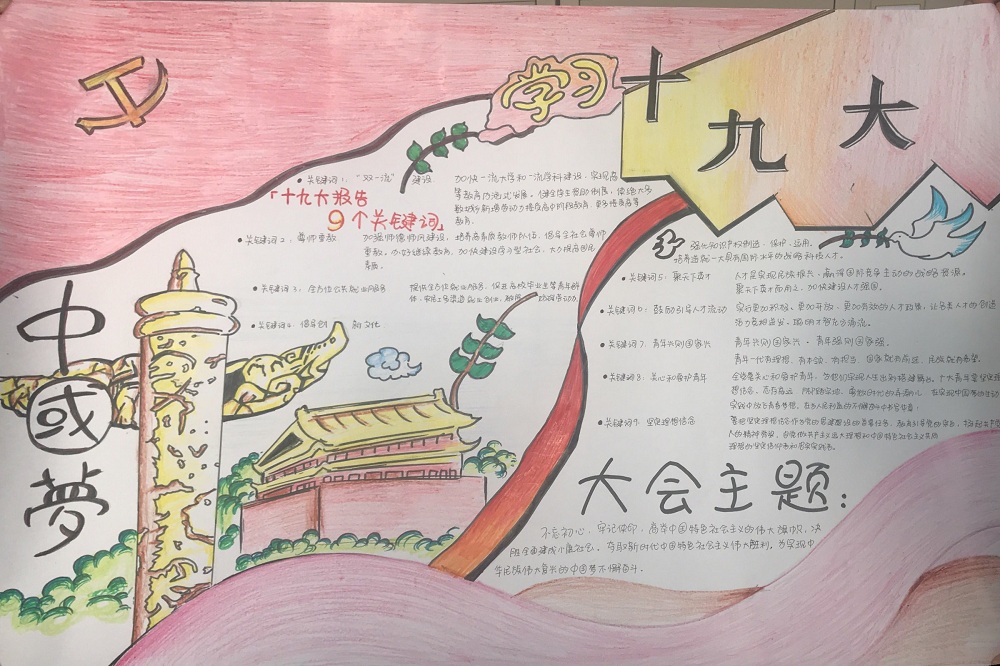 学习
十九大
中
國
夢
「十九大报告
9个关键词」
• 关键词1：“双一流” 建设
加快一流大学和一流学科建设，实现高
等教育内涵式发展。健全学生资助制度，使绝大多
数城乡新增劳动力接受高中阶段教育，更多接受高等
教育。
• 关键词2：尊师重教
加强师德师风建设，培养高素质教师队伍，倡导全社会尊师
重教。办好继续教育，加快建设学习型社会，大力提高国民
素质。
• 关键词3：全方位公共就业服务
提供全方位就业服务，促进高校毕业生等青年群
• 关键词4：倡导创 新文化
强化知识产权创造、保护、运用。
培养造就一大具有国际水平的战略科技人才。
• 关键词5：聚天下英才
人才是实现民族振兴、赢得国际竞争主动的战略资源。
聚天下英才而用之，加快建设人才强国。
• 关键词6：鼓励引导人才流动
实行更加积极、更加开放、更加有效的人才政策，让各类人才的创造
活力竞相迸发、聪明才智充分涌流。
• 关键词7：青年兴则国家兴
青年兴则国家兴，青年强则国家强。
青年一代有理想、有本领、有担当，国家就有前途，民族就有希望。
• 关键词8：关心和爱护青年
全党要关心和爱护青年，为他们实现人生出彩搭建舞台。广大青年要坚定理
• 关键词9：坚定理想信念
大会主题：
不忘初心，牢记使命，高举中国特色社会主义的伟大旗帜，决
胜全面建成小康社会，夺取新时代中国特色社会主义伟大胜利，为实现中
华民族伟大复兴的中国梦不懈奋斗。